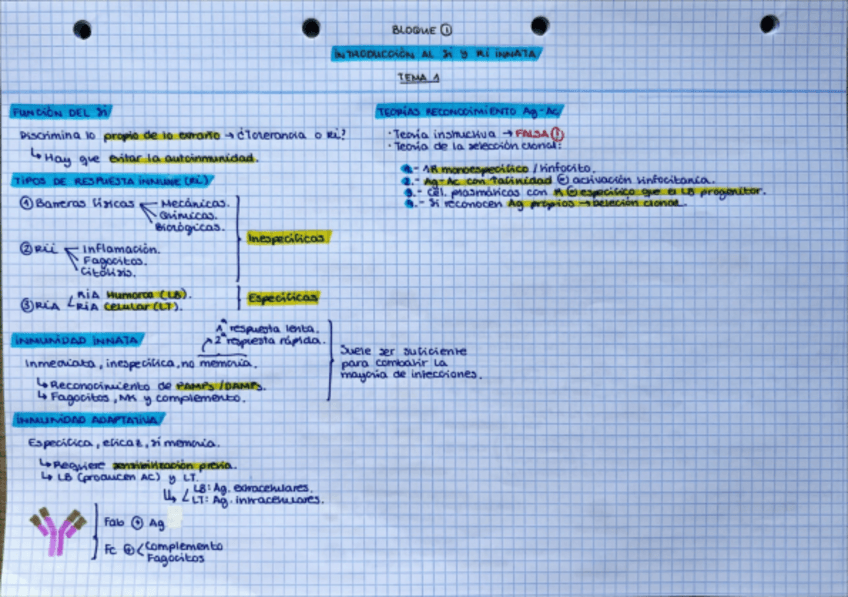 BLOQUE ①
INTRODUCCIÓN AL SI Y RI INNATA
TEMA 1
FUNCIÓN DEL SI
Discrimina lo propio de lo extraño → ¿Tolerancia o RI?
↳ Hay que evitar la autoinmunidad.
TIPOS DE RESPUESTA INMUNE (RI)
① Barreras físicas
Mecánicas.
Químicas.
Biológicas.
② RII
Inflamación.
Fagocitos.
Citólisis.
Inespecíficas
③ RIA
RIA Humoral (LB).
RIA Celular (LT).
Específicas
INMUNIDAD INNATA
1ª respuesta lenta.
2ª respuesta rápida.
Inmediata, inespecífica, no memoria.
↳ Reconocimiento de PAMPs/DAMPs.
↳ Fagocitos, NK y complemento.
Suele ser suficiente
para combatir la
mayoría de infecciones.
INMUNIDAD ADAPTATIVA
Específica, eficaz, sí memoria.
↳ Requiere sensibilización previa.
↳ LB (producen AC) y LT.
↳ LB: Ag. extracelulares.
LT: Ag. intracelulares.
Fab ⊕ Ag
Fc ⊕
Complemento
Fagocitos
TEORÍAS RECONOCIMIENTO Ag-Ac
· Teoría instructiva → FALSA
· Teoría de la selección clonal:
1.- 1R monoespecífico / linfocito.
2.- Ag-Ac con ↑afinidad ⊕ activación linfocitaria.
3.- Cél. plasmáticas con R ⊖ específico que el LB progenitor.
4.- Si reconocen Ag propios → deleción clonal.